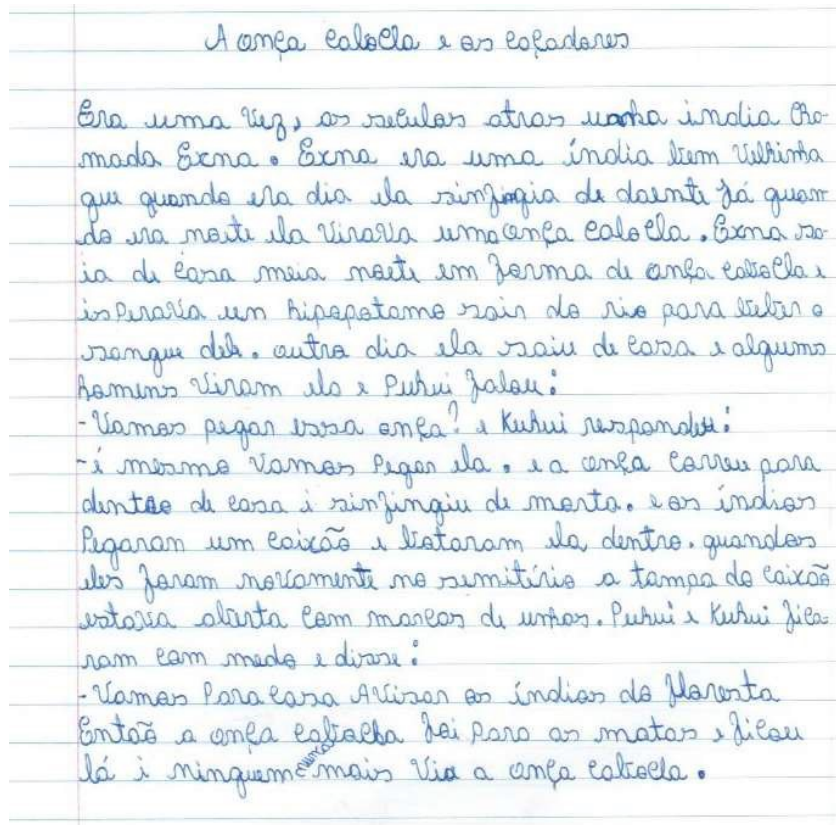 A onça cabocla e os caçadores
Era uma vez, os seculos atras uma índia cha-
mada Exna. Exna era uma índia bem velhinha
que quando era dia ela sinfingia de doente já quan
do era noite ela virava uma onça cabocla. Exna sa-
ia de casa meia noite em forma de onça cabocla e
isperava um hipopotamo sair do rio para beber o
sangue dele. outro dia ela saiu de casa e alguns
homens viram ela e Puhui falou:
- Vamos pegar essa onça? e Kuhui respondeu:
- é mesmo vamos pegar ela. e a onça correu para
dentro de casa i sinfingiu de morta. e os índios
Pegaran um caixão e botaram ela dentro. quandos
eles foram novamente no semitírio a tampa do caixão
estava aberta com marcas de unhas. Puhui e Kuhui fica-
ram com medo e disse:
- Vamos Para casa Avisar os índios da floresta
Entaõ a onça cabocla foi para as matas e ficou
lá i ninguem nunca mais via a onça cabocla.